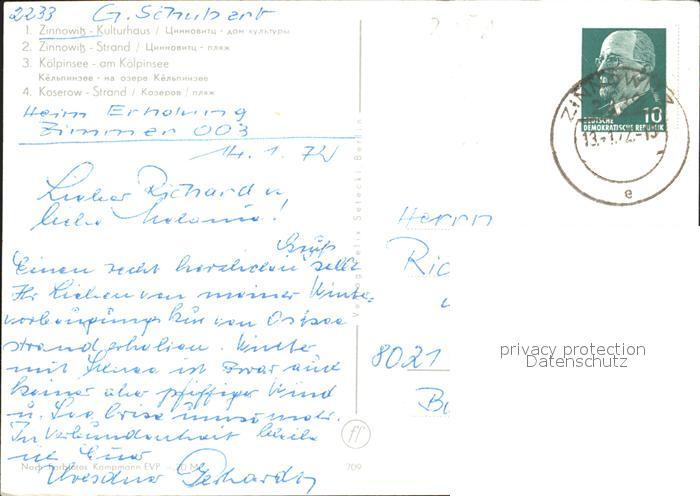 2233 G. Schubert
1. Zinnowitz - Kulturhaus / Цинновитц - дом культуры
2. Zinnowitz - Strand / Цинновитц - пляж
3. Kölpinsee - am Kölpinsee
Кёльпинзее - на озере Кёльпинзее
4. Koserow - Strand / Козеров / пляж
Heim Erholung
Zimmer 003
14.1.72
Lieber Richard u.
liebe Melanie!
Gruß
Einen recht herzlichen sollt
Ihr Lieben von meiner Winter
vorbeugungskur vom Ostsee
strand erhalten. Winter
mit Schnee ist zwar auch
keiner aber pfiffiger Wind
u. Seebrise umso mehr.
In Verbundenheit bleibe
ich Euer
Dresdner Gerhardt
Nach Farbfotos Kampmann EVP - 20 MDN
709
Verlag Felix Setecki Berlin
DEUTSCHE
DEMOKRATISCHE REPUBLIK
10
ZINNOWITZ
13.-1.72.-15
e
Herrn
Ric
8021
privacy protection
Datenschutz